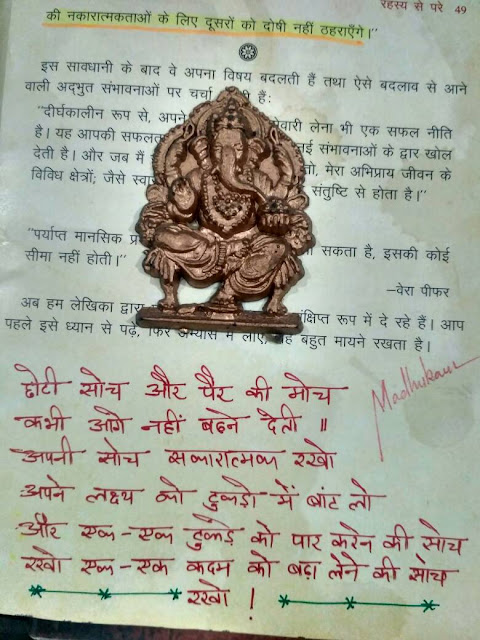 रहस्य से परे 49
की नकारात्मकताओं के लिए दूसरों को दोषी नहीं ठहराएँगे।"
इस सावधानी के बाद वे अपना विषय बदलती हैं तथा ऐसे बदलाव से आने
वाली अद्भुत संभावनाओं पर चर्चा हैं:
"दीर्घकालीन रूप से, अपने लेना भी एक सफल नीति
है। यह आपकी संभावनाओं के द्वार खोल
देती है। और जब मैं तो, मेरा अभिप्राय जीवन के
विविध क्षेत्रों; जैसे संतुष्टि से होता है।"
"पर्याप्त मानसिक सकता है, इसकी कोई
सीमा नहीं होती।"
–वेरा पीफर
अब हम लेखिका द्वारा रूप में दे रहे हैं। आप
पहले इसे ध्यान से पढ़ें, फिर अभ्यास में लाएँ, यह बहुत मायने रखता है।
छोटी सोच और पैर की मोच
कभी आगे नहीं बढने देती ॥
अपनी सोच सकारात्मक रखो
अपने लक्ष्य को टुकड़ो में बांट लो
और एक-एक टुकड़े को पार करेन की सोच
रखो एक-एक कदम को बढ़ा लेने की सोच
रखो !
Madhukaur